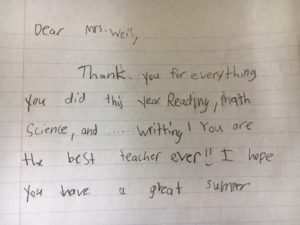 Dear Mrs. Weis,
Thank you for everything
you did this year Reading, Math
Science, and ..... writting! You are
the best teacher ever!! I hope
you have a great sumer.